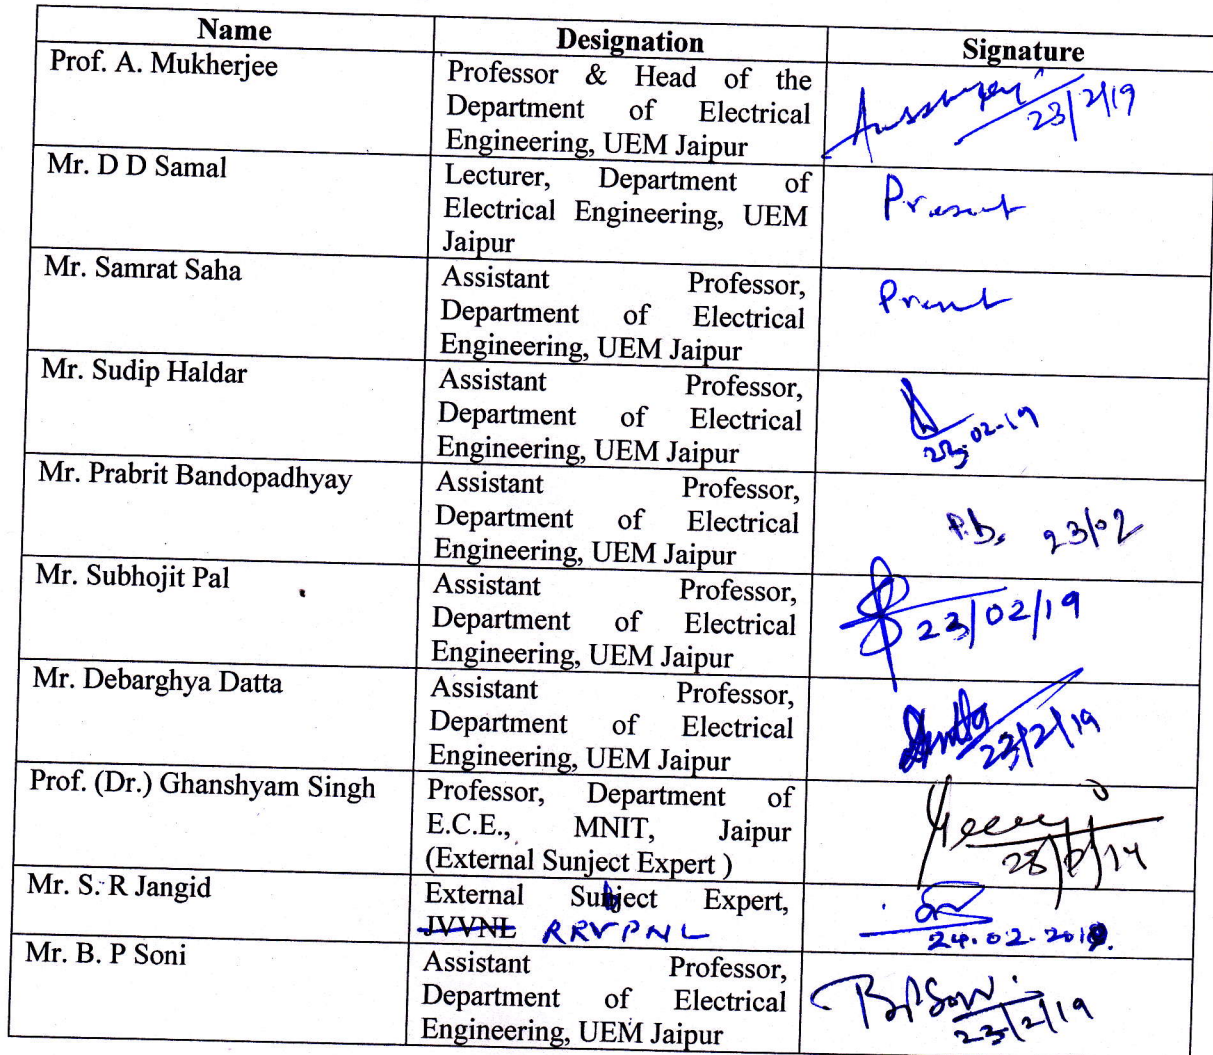 Name Designation Signature
Prof. A. Mukherjee Professor & Head of the
Department of Electrical 23/2/19
Engineering, UEM Jaipur
Mr. D D Samal Lecturer, Department of Present
Electrical Engineering, UEM
Jaipur
Mr. Samrat Saha Assistant Professor, Present
Department of Electrical
Engineering, UEM Jaipur
Mr. Sudip Haldar Assistant Professor,
Department of Electrical
Engineering, UEM Jaipur 23.02-19
Mr. Prabrit Bandopadhyay Assistant Professor,
Department of Electrical P.b. 23/02
Engineering, UEM Jaipur
Mr. Subhojit Pal Assistant Professor,
Department of Electrical 23/02/19
Engineering, UEM Jaipur
Mr. Debarghya Datta Assistant Professor,
Department of Electrical 23/2/19
Engineering, UEM Jaipur
Prof. (Dr.) Ghanshyam Singh Professor, Department of
E.C.E., MNIT, Jaipur
(External Sunject Expert )
Mr. S. R Jangid External Subject Expert,
JVVNL RRVPNL 24.02.2019.
Mr. B. P Soni Assistant Professor,
Department of Electrical BPSoni
Engineering, UEM Jaipur 23/2/19